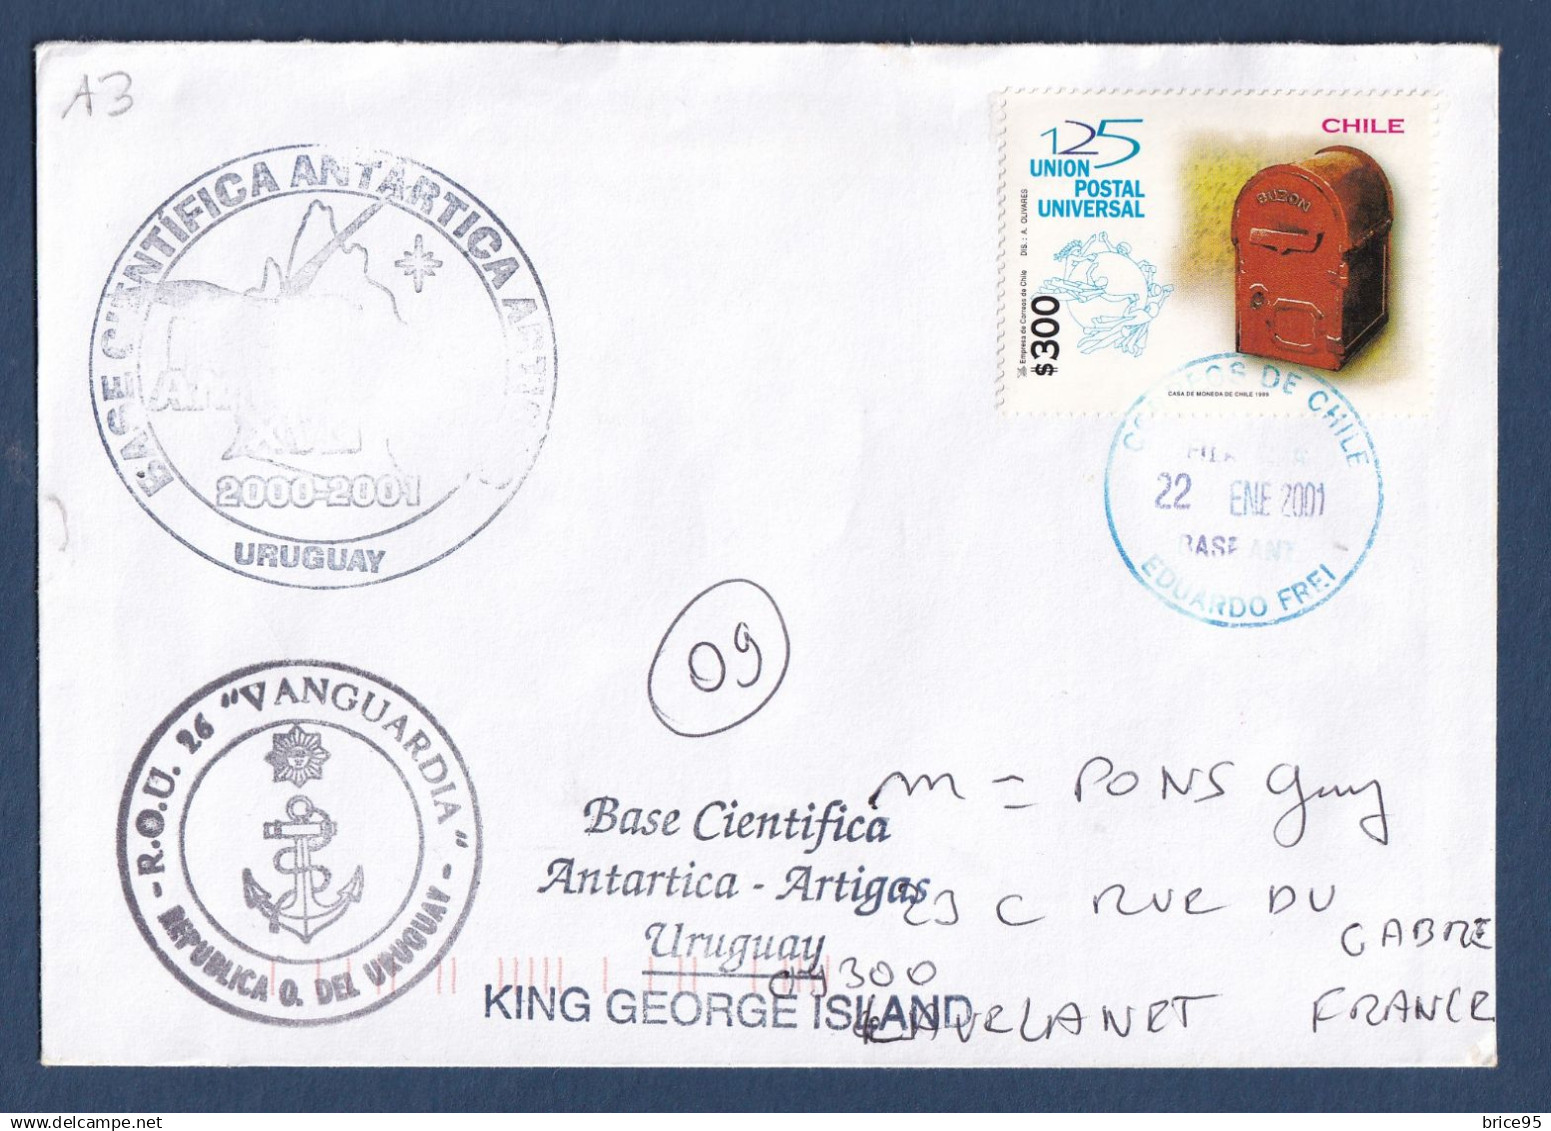 A3
BASE CIENTÍFICA ANTARTICA
2000-2001
URUGUAY
125
UNION
POSTAL
UNIVERSAL
CHILE
BUZON
DIS.: A. OLIVARES
Empresa de Correos de Chile
$300
CASA DE MONEDA DE CHILE 1999
CORREOS DE CHILE
22 ENE 2001
BASE ANT
EDUARDO FREI
09
R.O.U. 26 "VANGUARDIA"
- REPUBLICA O. DEL URUGUAY -
Base Cientifica
Antartica - Artigas
Uruguay
KING GEORGE ISLAND
M = PONS Guy
23 C RUE DU
GABRE
09300
LAVELANET FRANCE
brice95